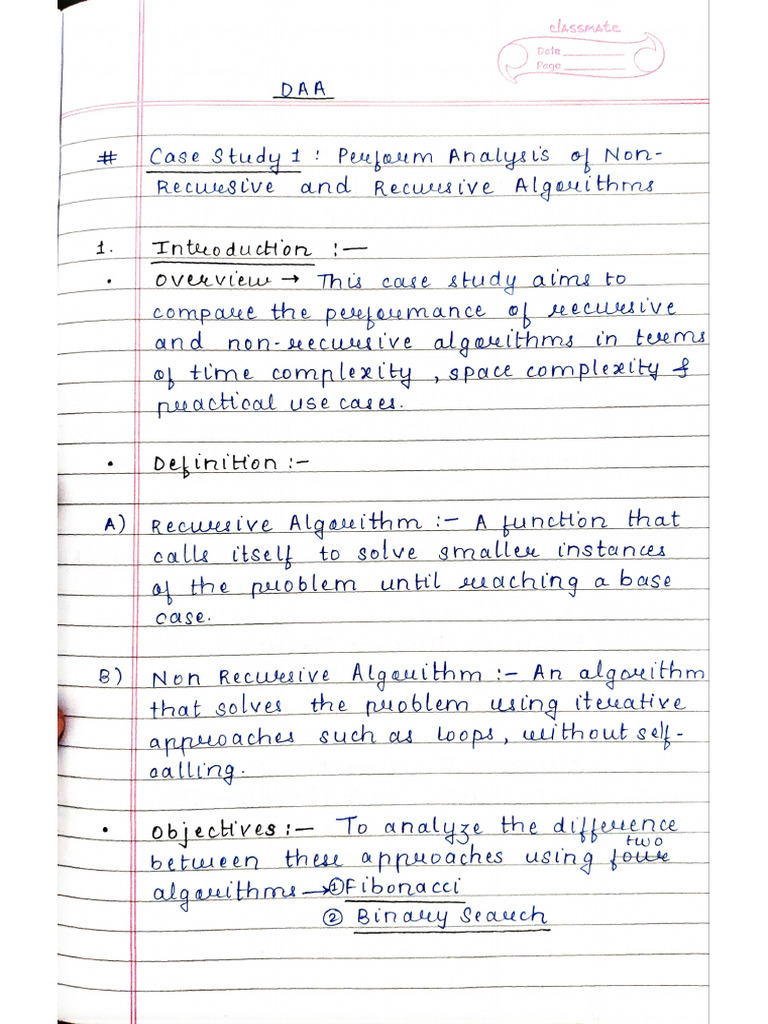 classmate
Date
Page
DAA
# Case Study 1 : Perform Analysis of Non-
Recursive and Recursive Algorithms
1. Introduction :—
• Overview → This case study aims to
compare the performance of recursive
and non-recursive algorithms in terms
of time complexity , space complexity &
practical use cases.
• Definition :-
A) Recursive Algorithm :- A function that
calls itself to solve smaller instances
of the problem until reaching a base
case.
B) Non Recursive Algorithm :- An algorithm
that solves the problem using iterative
approaches such as loops, without self-
calling.
• Objectives :— To analyze the difference
two
between these approaches using four
algorithms → ① Fibonacci
② Binary Search